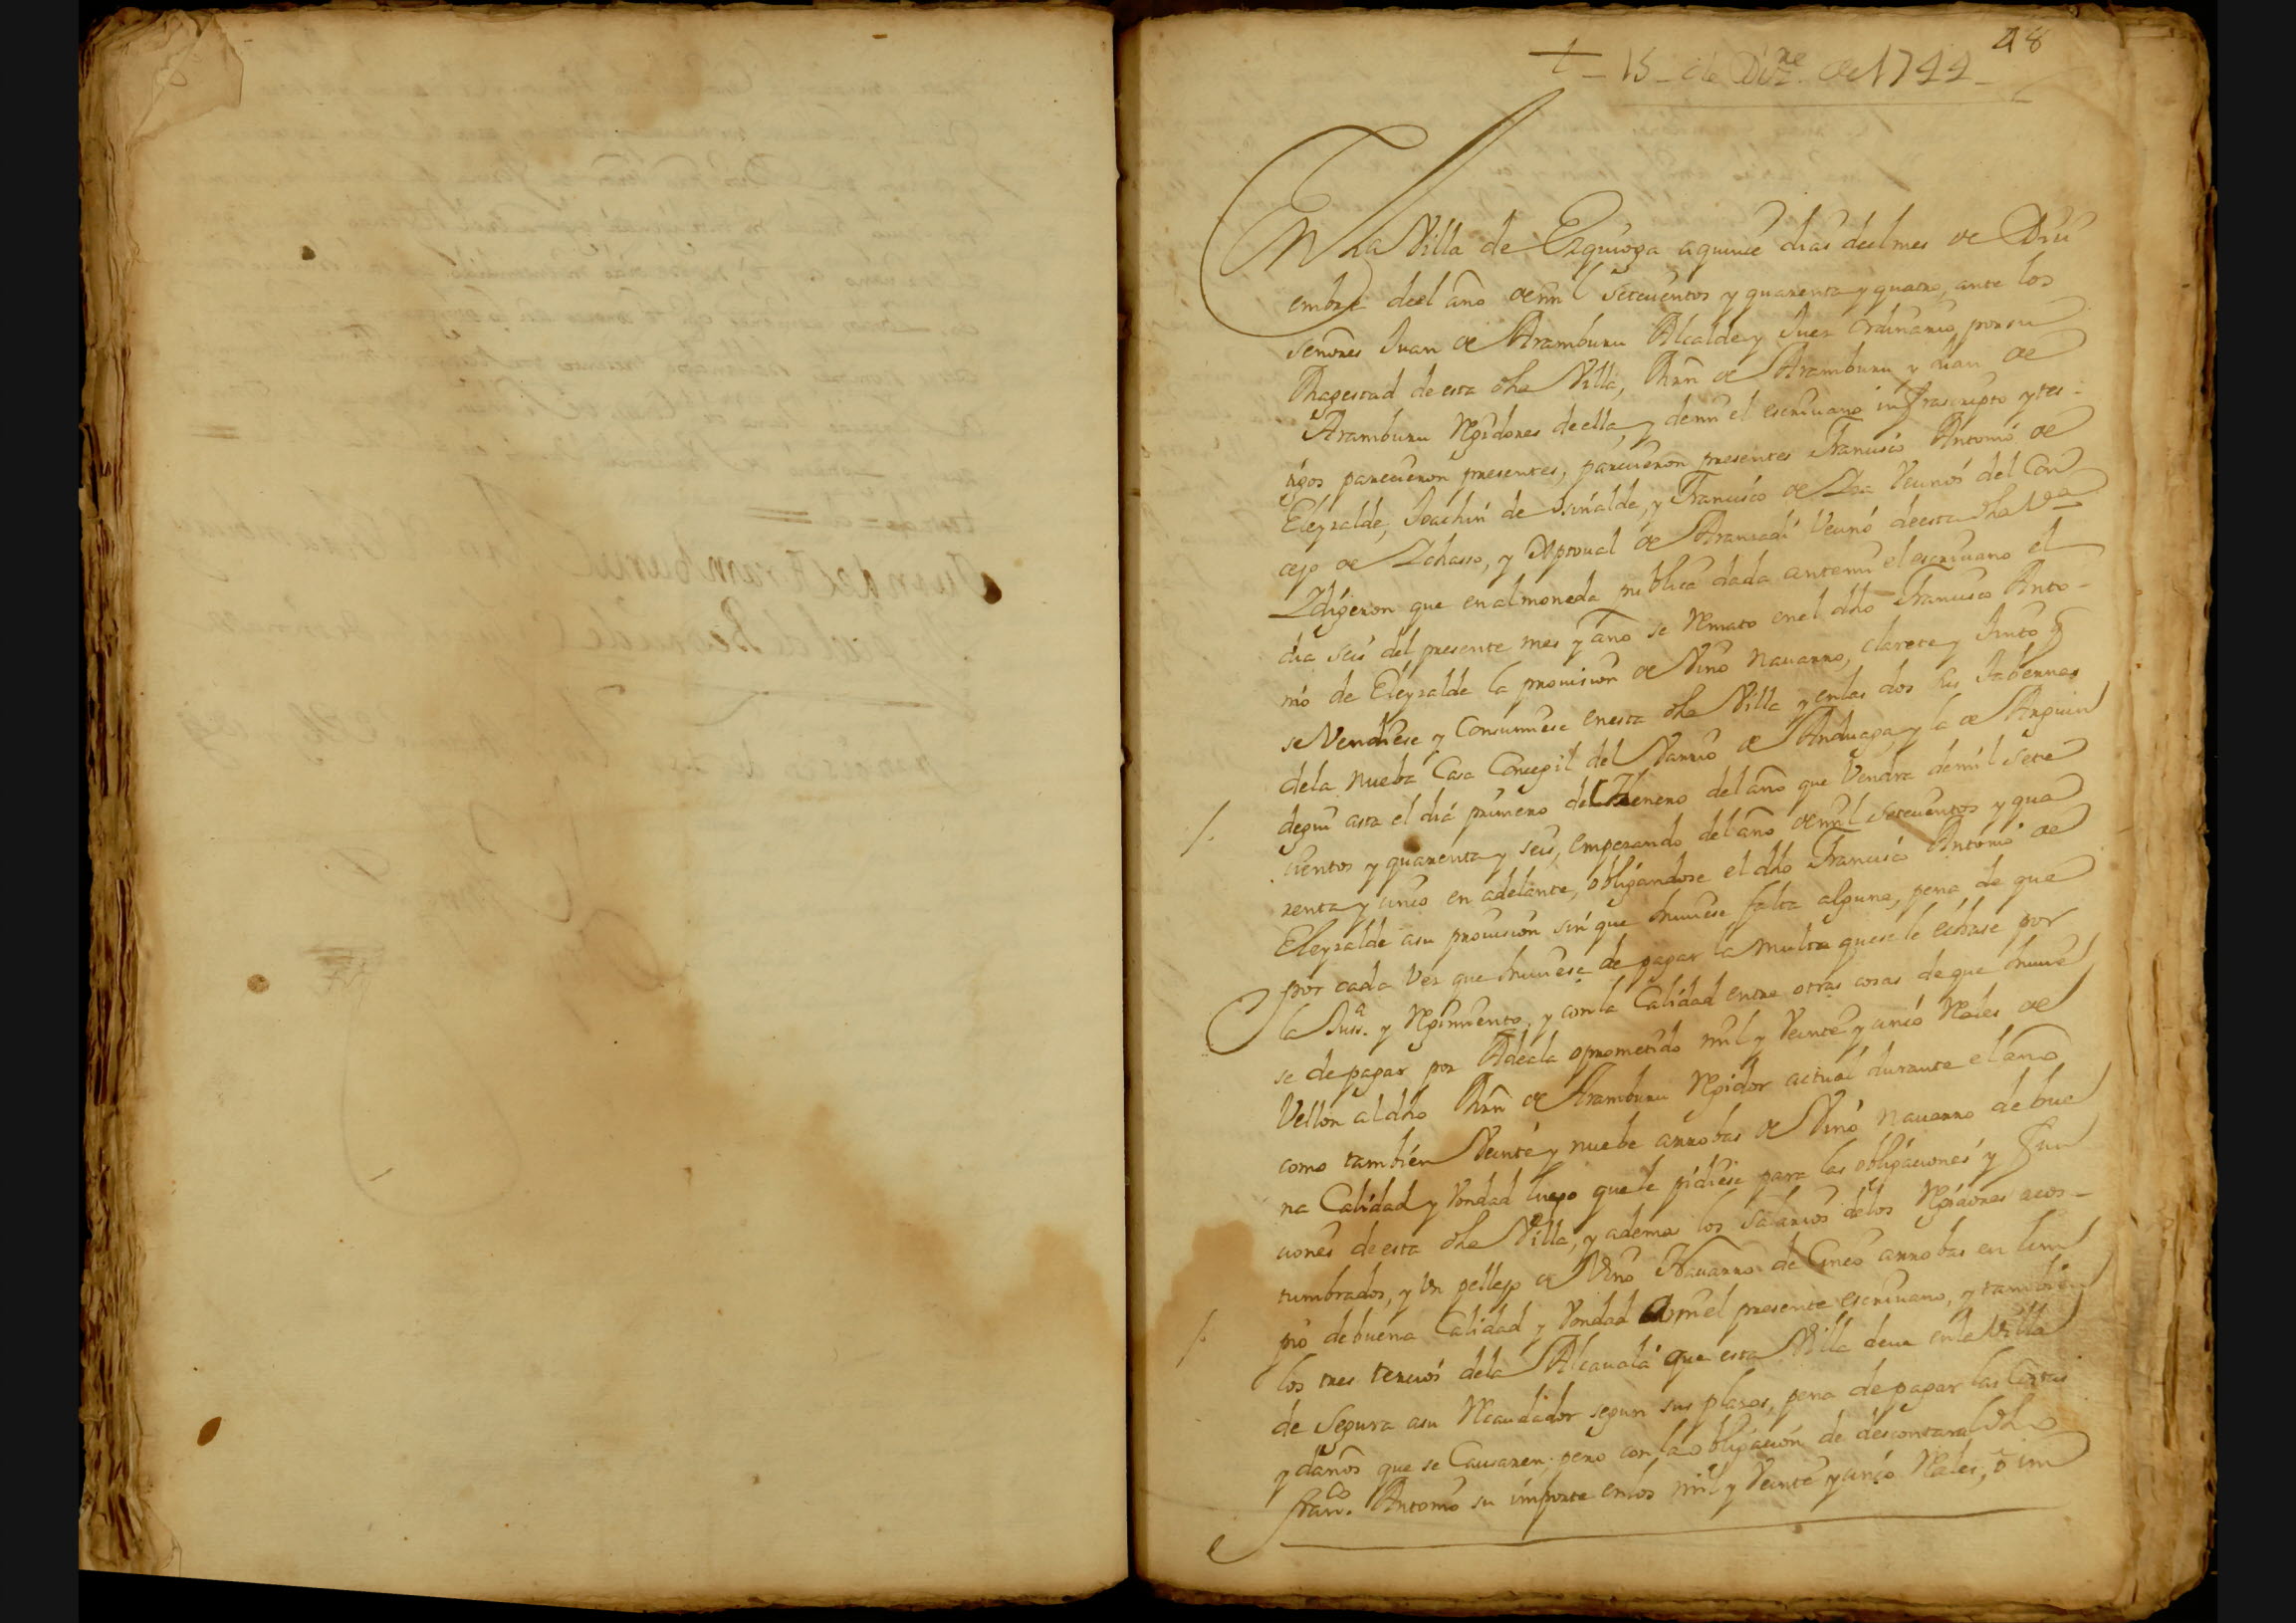 48
+ 15 de Diz.re de 1744
En la Villa de Ezquioga a quince dias deel mes de Dizi
embre deel año de mil setecientos y quarenta y quatro, ante los
señores Juan de Aramburu Alcalde y Juez ordinario por su
Magestad de esta dha Villa, Mrn de Aramburu y Juan de
Aramburu Rexidores de ella, y demi el escrivano infrascripto y tes-
tigos parecieron presentes, parecieron presentes Francisco Antonio de
Eleyzalde, Joachin de Isinalde, y Francisco de Zua Vecinos del Con
cejo de Ychasso, y Xptoual de Aranzadi Vecino de esta dha V.a
Y digeron que en almoneda publica dada antemi el escrivano el
dia seis del presente mes y año se Remato en el dho Francisco Anto-
nio de Eleyzalde la provision de Vino navarro, clarete y tinto q
se Vendiese y Consumiese en esta dha Villa y en las dos sus Tabernas
de la nueba Casa Concegil del Varrio de Anduaga y la de Anguin
degui asta el dia primero de Henero del año que Vendra de mil sete
cientos y quarenta y seis, empezando del año de mil setecientos y qua
renta y cinco en adelante, obligandose el dho Francisco Antonio de
Eleyzalde asu provision sin que huuiese falta alguna, pena de que
por cada Vez que huuiese de pagar la multa que se le echase por
la Juss.a y Regimiento, y con la Calidad entre otras cosas de que huuie
se de pagar por Adeala o prometido mil y Veinte y cinco Reales de
Vellon al dho Mrn de Aramburu Regidor actual durante el año
como tambien Veinte y nuebe arrobas de Vino navarro de bue
na Calidad y Vondad luego que le pidiese para las obligaciones y fun
ciones de esta dha Villa, y ademas los salarios de los Regidores acos-
tumbrados, y Un pellejo de Vino Navarro de Cinco arrobas en lim
pio de buena Calidad y Vondad a mi el presente escrivano, y tambien
los tres tercios de la Alcauala que esta Villa deue en la Villa
de Segura asu Recaudador segun sus plazos, pena de pagar las Costas
y daños que se Causaren; pero con la obligacion de descontar al dho
fran.co Antonio su importe en los mil y Veinte y cinco Reales, o im